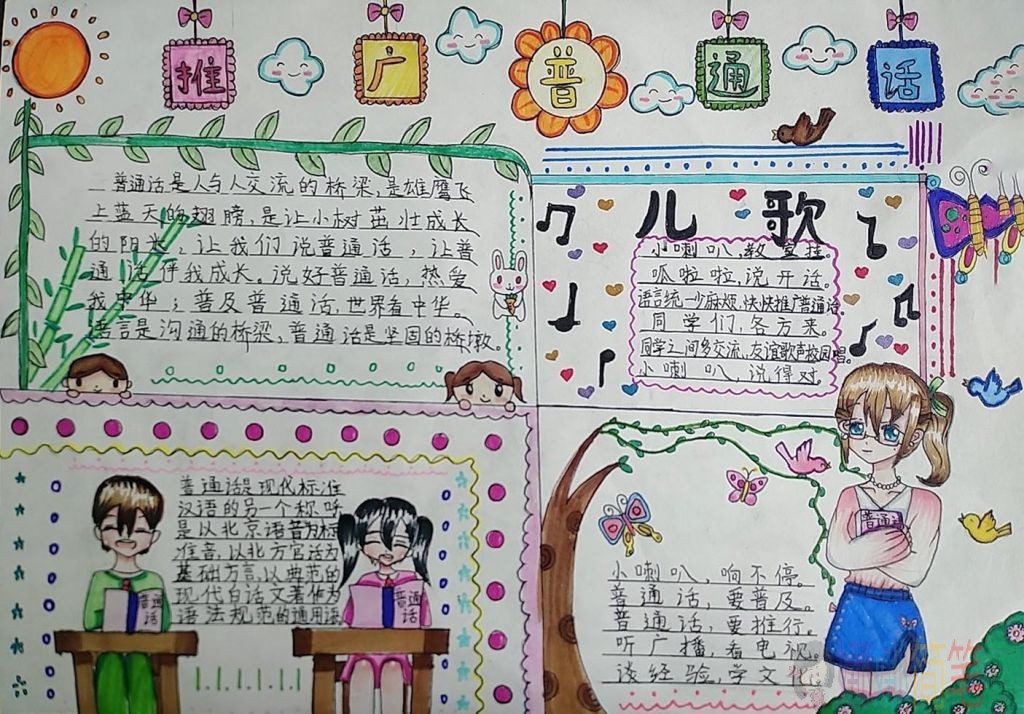 推广普通话
普通话是人与人交流的桥梁,是雄鹰飞
上蓝天的翅膀,是让小树茁壮成长
的阳光,让我们说普通话,让普
通话伴我成长。说好普通话,热爱
我中华;普及普通话,世界看中华。
语言是沟通的桥梁,普通话是坚固的桥墩。
儿歌
小喇叭,教室挂。
呱啦啦,说开话。
语言统一少麻烦,快快推广普通话。
同学们,各方来。
同学之间多交流,友谊歌声校园唱。
小喇叭,说得对。
普通话是现代标准
汉语的另一个称呼
是以北京语音为标
准音,以北方官话为
基础方言,以典范的
现代白话文著作为
语法规范的通用语
普通话
普通话
小喇叭,响不停。
普通话,要普及。
普通话,要推行。
听广播,看电视。
谈经验,学文化
普通话